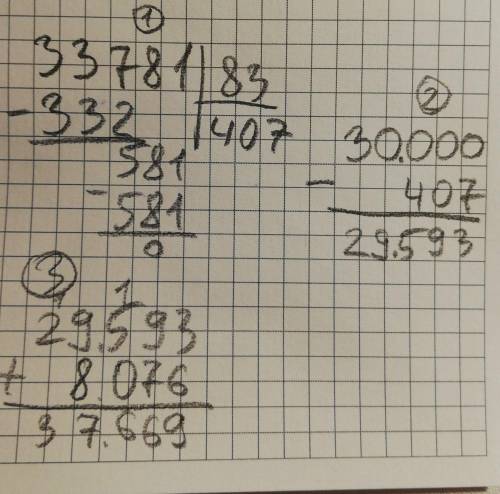 ①
33781 | 83
- 332 | 407
581
- 581
0
②
30.000
- 407
29.593
③
1 1
29.593
+ 8.076
37.669